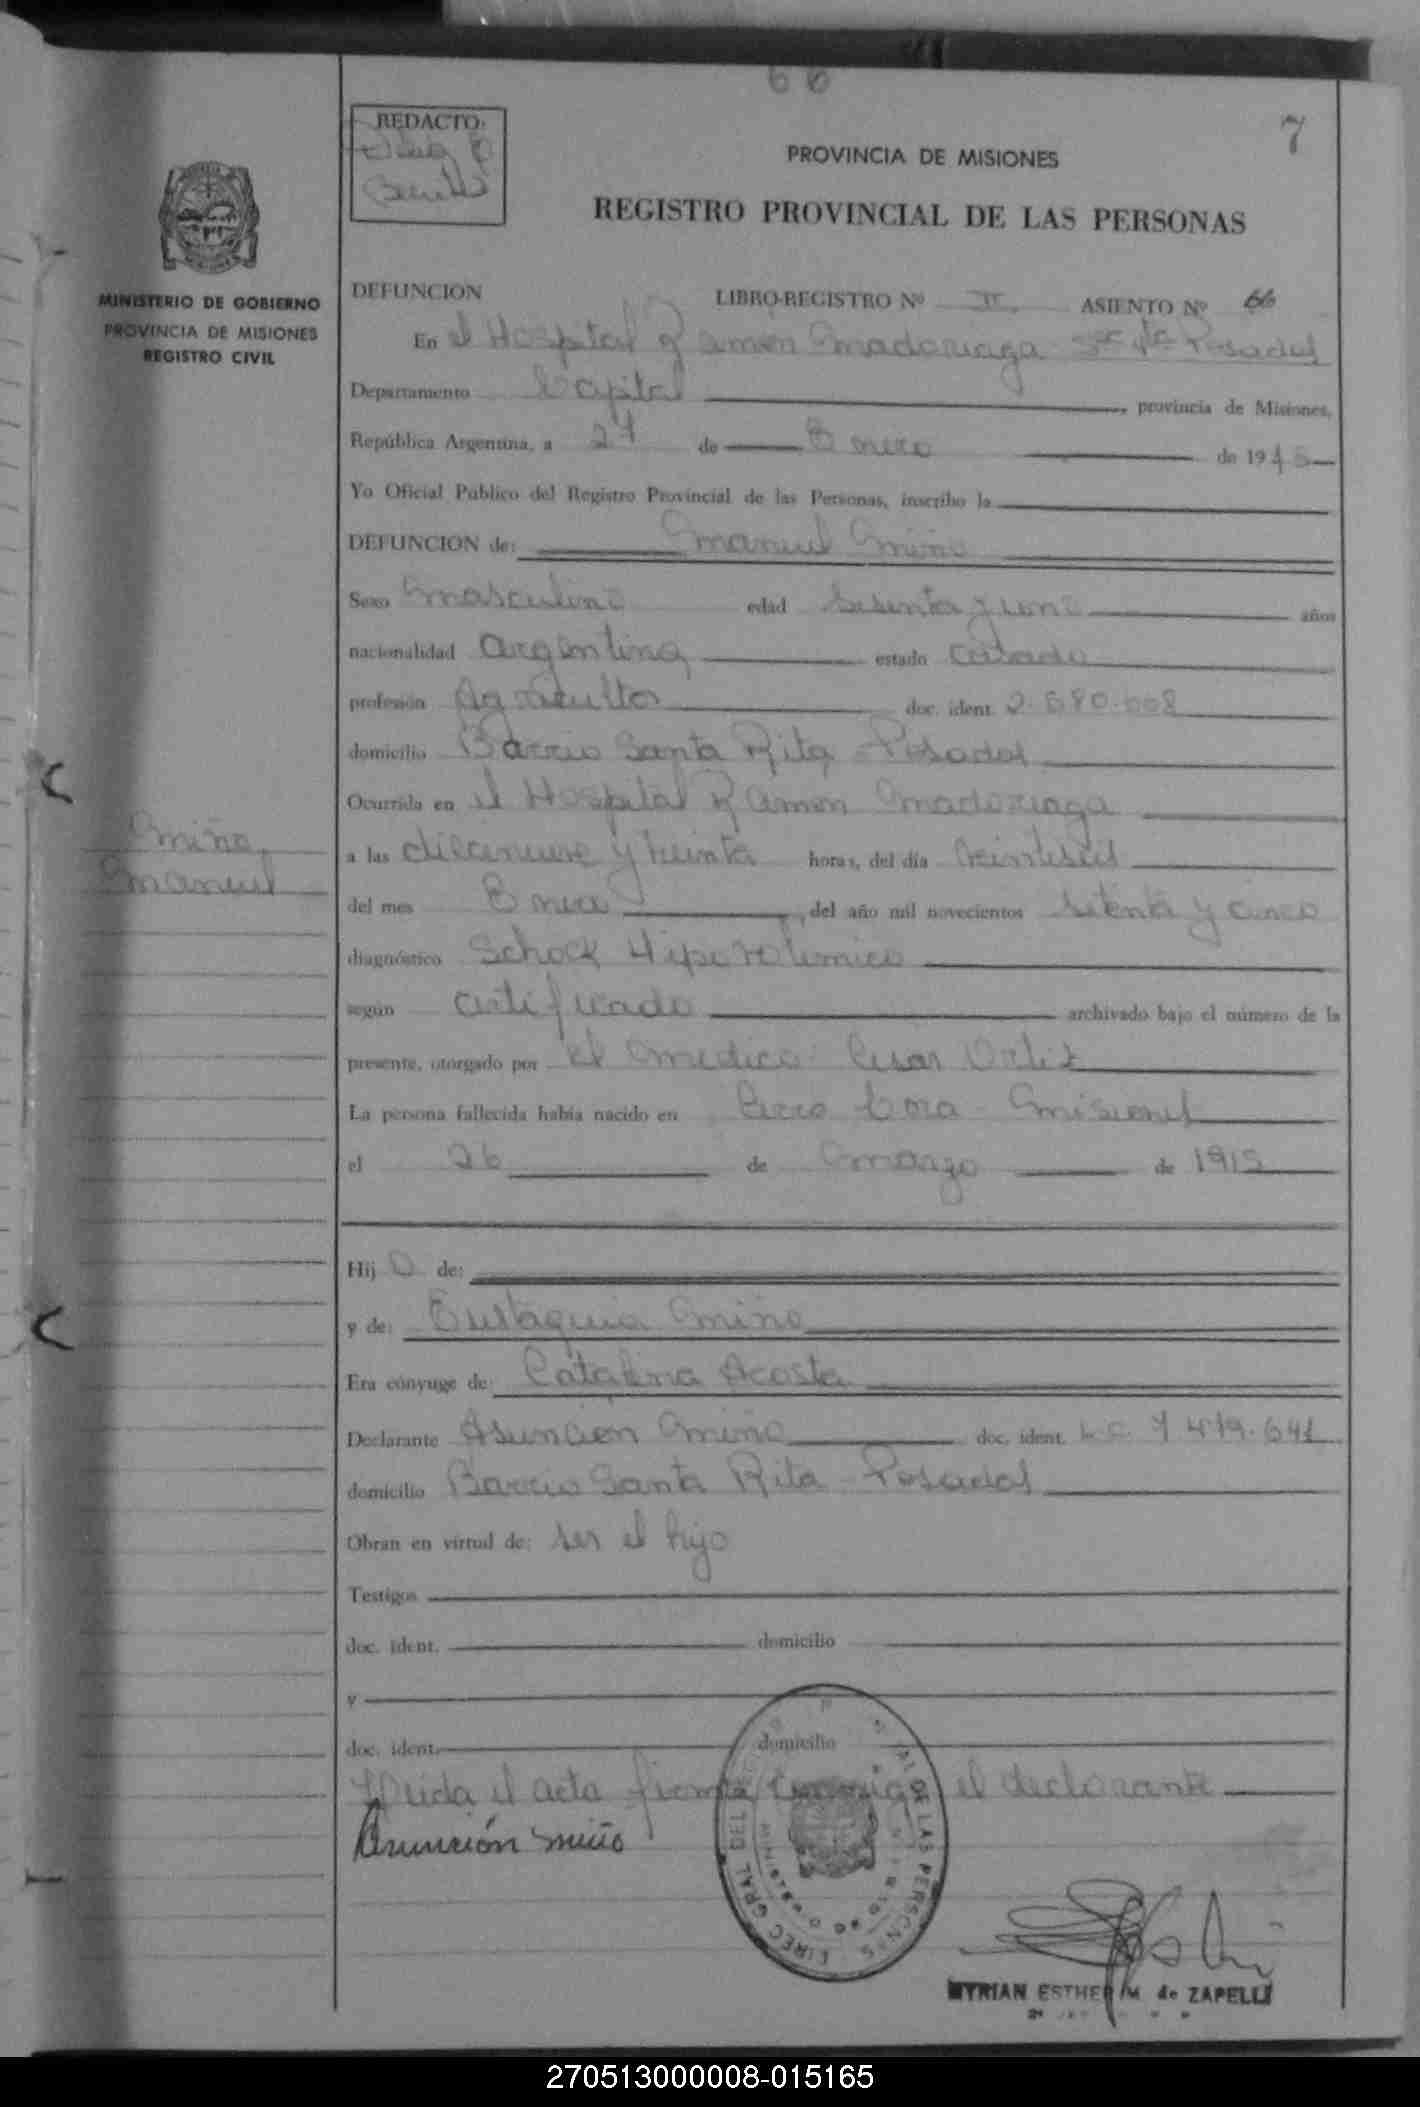 66
7
REDACTO:
PROVINCIA DE MISIONES
REGISTRO PROVINCIAL DE LAS PERSONAS
MINISTERIO DE GOBIERNO
PROVINCIA DE MISIONES
REGISTRO CIVIL
DEFUNCION LIBRO-REGISTRO Nº II ASIENTO Nº 66
En el Hospital Ramon Madariaga Posadas
Departamento Capital, provincia de Misiones,
República Argentina, a 27 de Enero de 1975
Yo Oficial Público del Registro Provincial de las Personas, inscribo la
DEFUNCION de: Manuel Miño
Sexo Masculino edad Sesenta y uno años
nacionalidad Argentina estado Casado
profesión Agricultor doc. ident. 2.680.008
domicilio Barrio Santa Rita - Posadas
Ocurrida en el Hospital Ramon Madariaga
Miño,
Manuel
a las diecinueve y treinta horas, del día Veintiseis
del mes Enero, del año mil novecientos setenta y cinco
diagnóstico Schock Hipovolemico
según certificado archivado bajo el número de la
presente, otorgado por el Medico Cesar Ortiz
La persona fallecida había nacido en Cerro Cora - Misiones
el 26 de Marzo de 1913
Hijo de:
y de: Eustaquia Miño
Era cónyuge de: Catalina Acosta
Declarante Asuncion Miño doc. ident. L.E. 7.479.641
domicilio Barrio Santa Rita - Posadas
Obran en virtud de: ser el hijo
Testigos
doc. ident. domicilio
y
doc. ident. domicilio
Leida el acta firma conmigo el declarante
Asunción Miño
DIREC GRAL DEL DE LAS PERSONAS
MYRIAN ESTHER M. de ZAPELLI
270513000008-015165